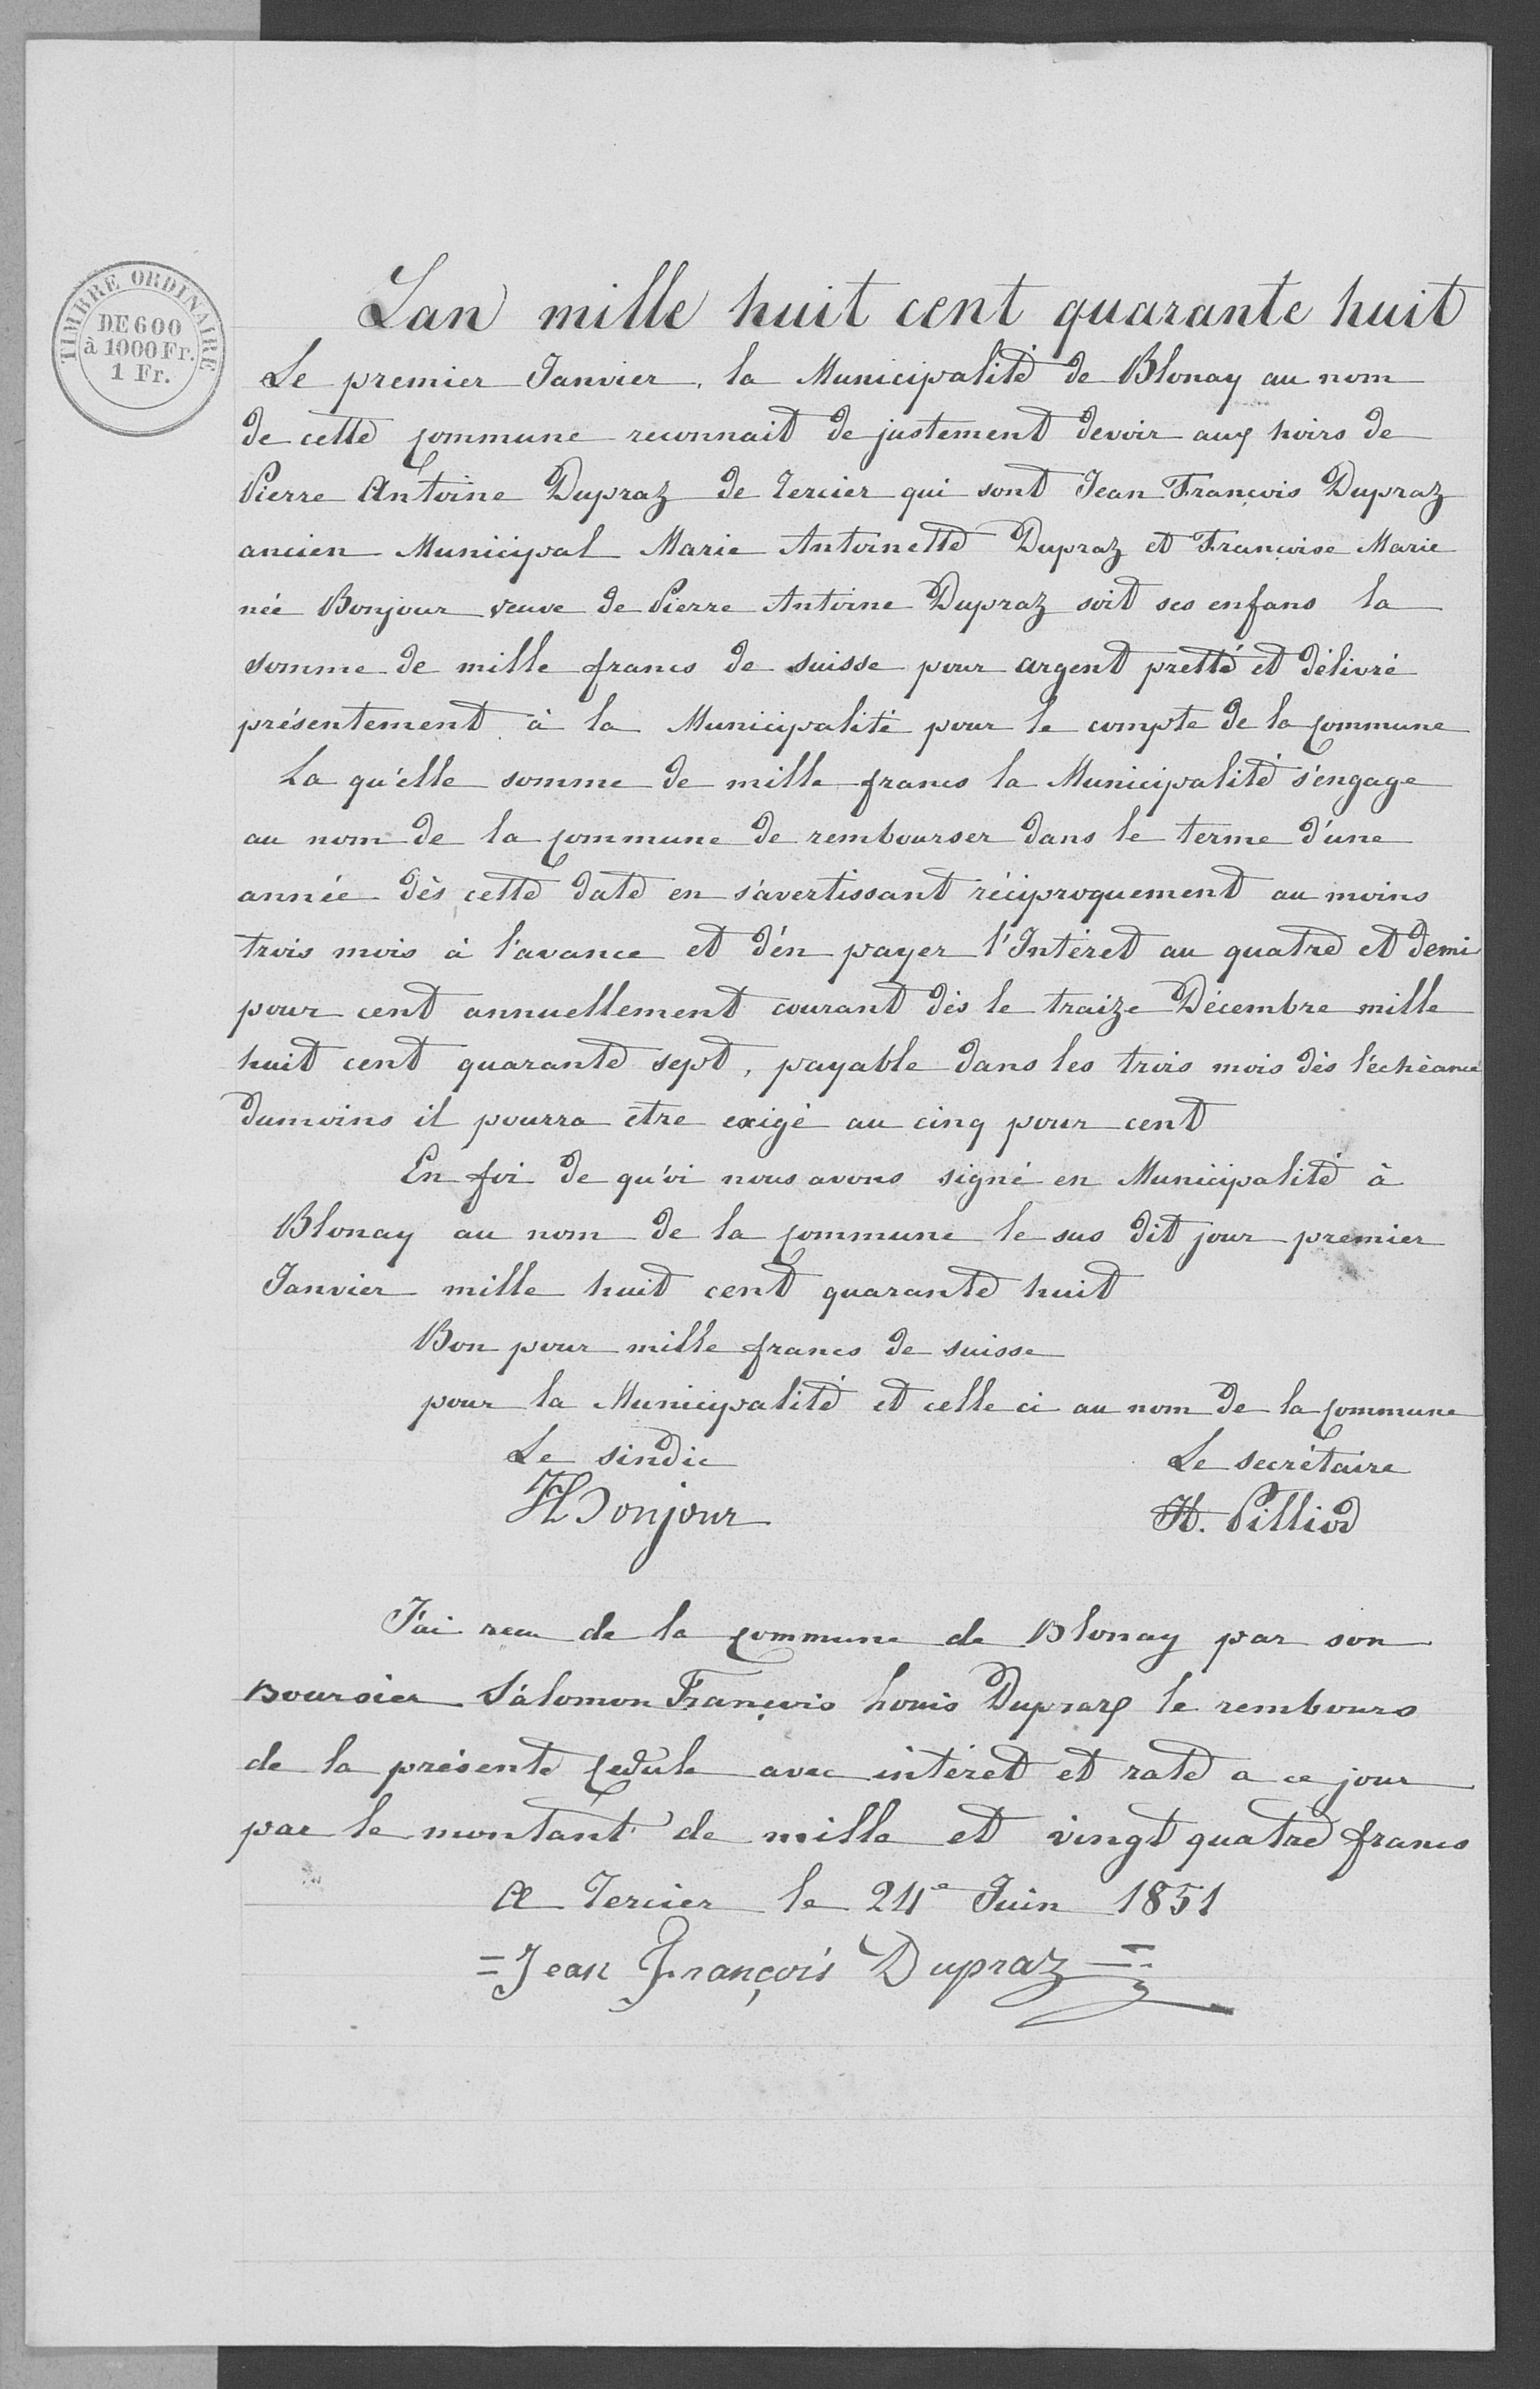 TIMBRE ORDINAIRE
DE 600
à 1000 Fr.
1 Fr.
Lan mille huit cent quarante huit
Le premier Janvier, la Municipalité de Blonay au nom
de cette commune reconnait de justement devoir aux hoirs de
Pierre Antoine Dupraz de Tercier qui sont Jean François Dupraz
ancien Municipal Marie Antoinette Dupraz et Françoise Marie
née Bonjour veuve de Pierre Antoine Dupraz soit ses enfans la
somme de mille francs de suisse pour argent pretté et délivré
présentement à la Municipalité pour le compte de la commune
La qu'elle somme de mille francs la Municipalité s'engage
au nom de la commune de rembourser dans le terme d'une
année dès cette date en s'avertissant réciproquement au moins
trois mois à l'avance et d'én payer l'Intéret au quatre et demi
pour cent annuellement courant dès le traize Décembre mille
huit cent quarante sept, payable dans les trois mois dès l'échéance
dumoins il pourra être exigé au cinq pour cent
En foi de qu'oi nous avons signé en Municipalité à
Blonay au nom de la commune le sus dit jour premier
Janvier mille huit cent quarante huit
Bon pour mille francs de suisse
pour la Municipalité et celle ci au nom de la commune
Le sindic
Le secrétaire
Bonjour
H. Pilliod
J'ai recu de la commune de Blonay par son
Boursier Salomon François Louis Dupraz le rembours
de la présente cedule avec intéret et rate a ce jour
par le montant de mille et vingt quatre francs
A Tercier le 24e Juin 1851
=Jean François Dupraz=